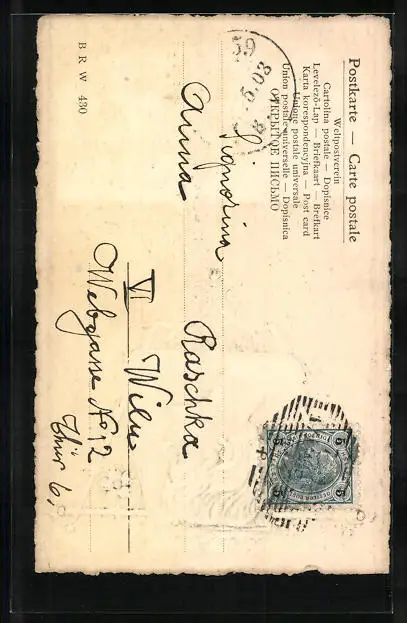 Postkarte — Carte postale
Weltpostverein
Cartolina postale — Dopisnice
Levelező-Lap — Briefkaart — Brefkort
Karta korespondencyjna — Post card
Unione postale universale
Union postale universelle — Dopisnica
ОТКРЫТОЕ ПИСЬМО
Signorina
Anna Raschka
VI Wien
Webgasse No 12
Thür 6,
B R W 430
59
5 5
5 5